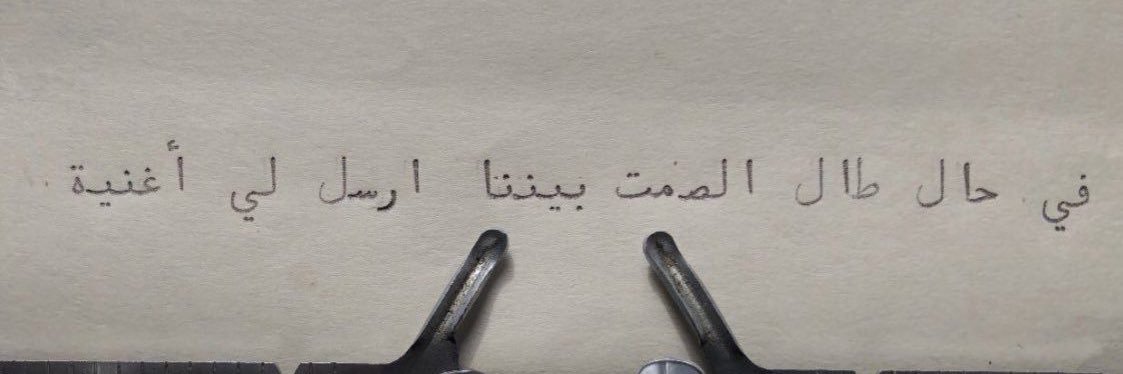 في حال طال الصمت بيننا ارسل لي أغنية